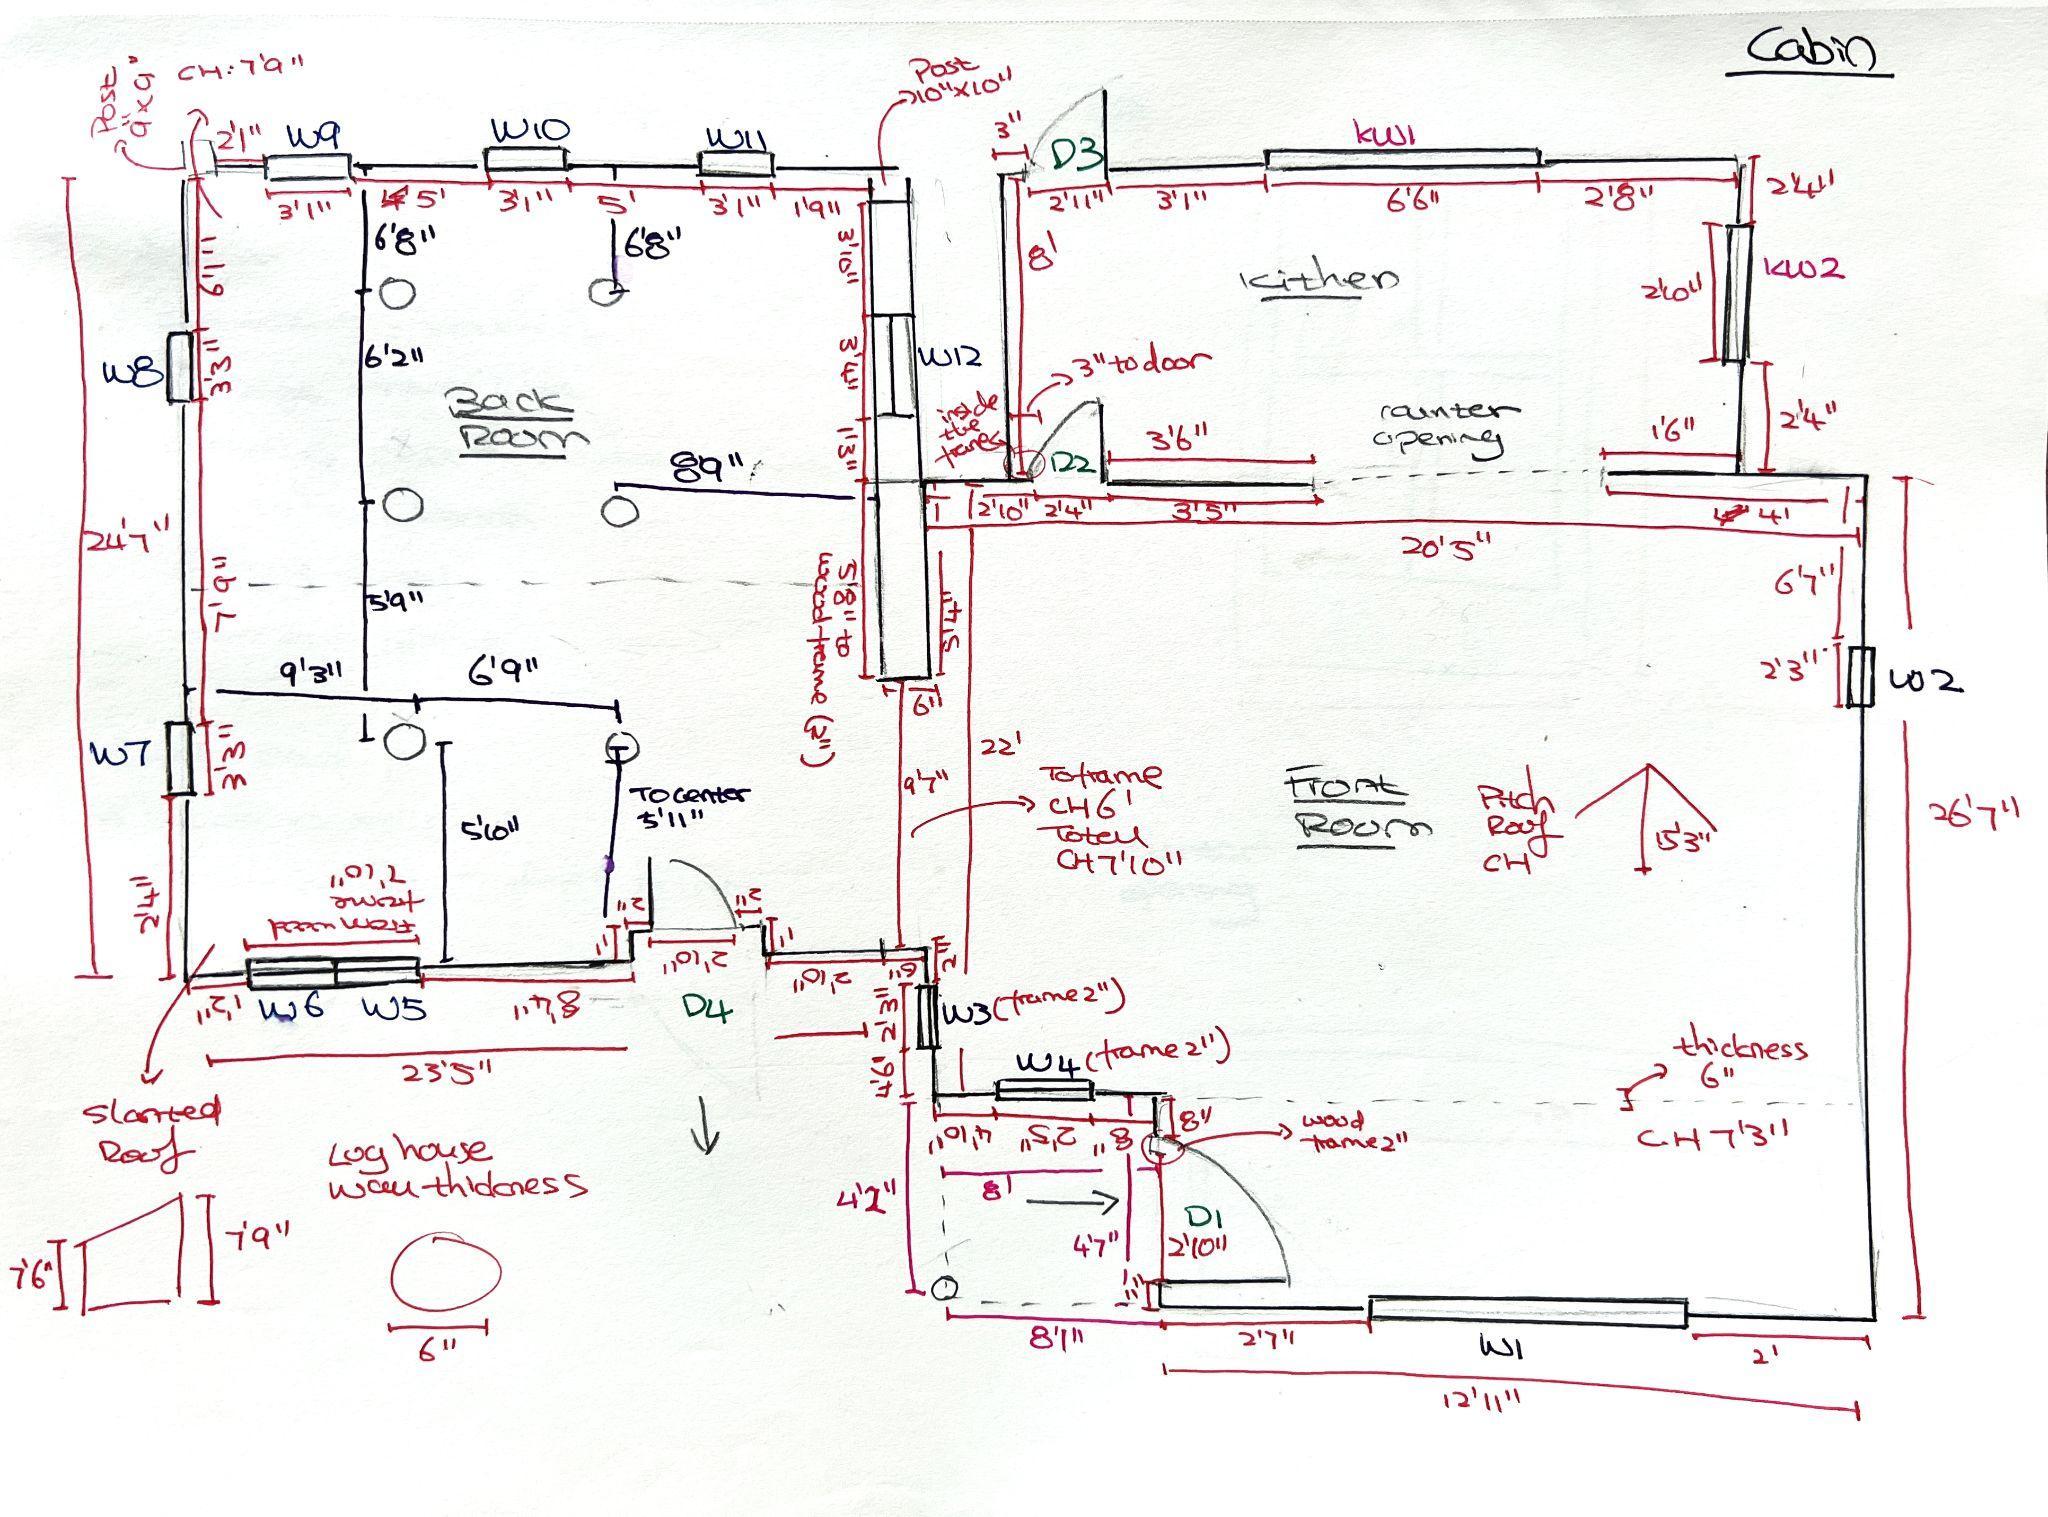 Cabin
Post
9"x9"
CH: 7'9"
Post
10"x10"
2'1"
W9
W10
W11
3"
D3
KW1
3'1"
5'
3'1"
5'
3'1"
1'9"
2'11"
3'1"
6'6"
2'8"
2'4"
6'8"
6'8"
6'11"
3'10"
8'
Kithen
2'10"
KW2
W8
3'3"
6'2"
Back
Room
3'4"
W12
3" to door
inside
the
frame
counter
opening
3'6"
1'6"
2'4"
1'3"
8'9"
D2
2'10"
2'4"
3'5"
4'
20'5"
24'7"
7'9"
5'9"
5'8" to
wood frame (2")
5'4"
6'7"
2'3"
W2
9'3"
6'9"
6"
W7
3'3"
22'
9'7"
To frame
CH 6'
Total
CH 7'10"
Front
Room
Pitch
Roof
CH
15'3"
26'7"
To center
5'11"
5'10"
2'4"
From wood
frame
7'10"
2"
2"
1"
1"
2'10"
2'10"
6"
2"
1'2"
W6
W5
8'4"
D4
2'3"
W3 (frame 2")
23'5"
W4 (frame 2")
thickness
6"
CH 7'3"
4'10"
2'5"
8"
8"
wood
frame 2"
Slanted
Roof
Log house
wall thickness
7'6"
7'9"
6"
8'
4'7"
D1
2'10"
1"
8'1"
2'7"
W1
2'
12'11"